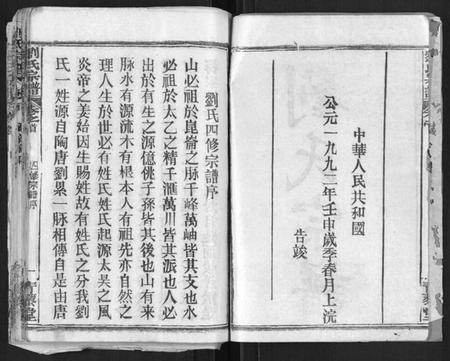 中華人民共和國
公元一九九二年壬申歲季春月上浣
告竣
劉氏四修宗譜序
山必祖於崑崙之脉千峰萬岫皆其支也水
必祖於太乙之精千滙萬川皆其派也人必
出於有生之源億兆子孫皆其後也山有來
脉水有源流木有根本人有祖先亦自然之
理人生於世必有姓氏姓氏起源太昊之風
炎帝之姜始因生賜姓故有姓氏之分我劉
氏一姓源自陶唐劉累一脉相傳自是由唐
劉氏宗譜
卷之首
四修宗譜序
一